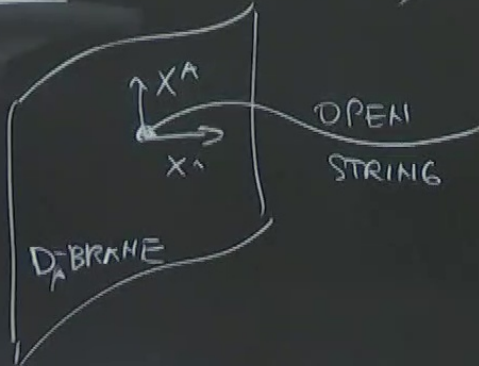 X^A
OPEN
STRING
D_A-BRANE